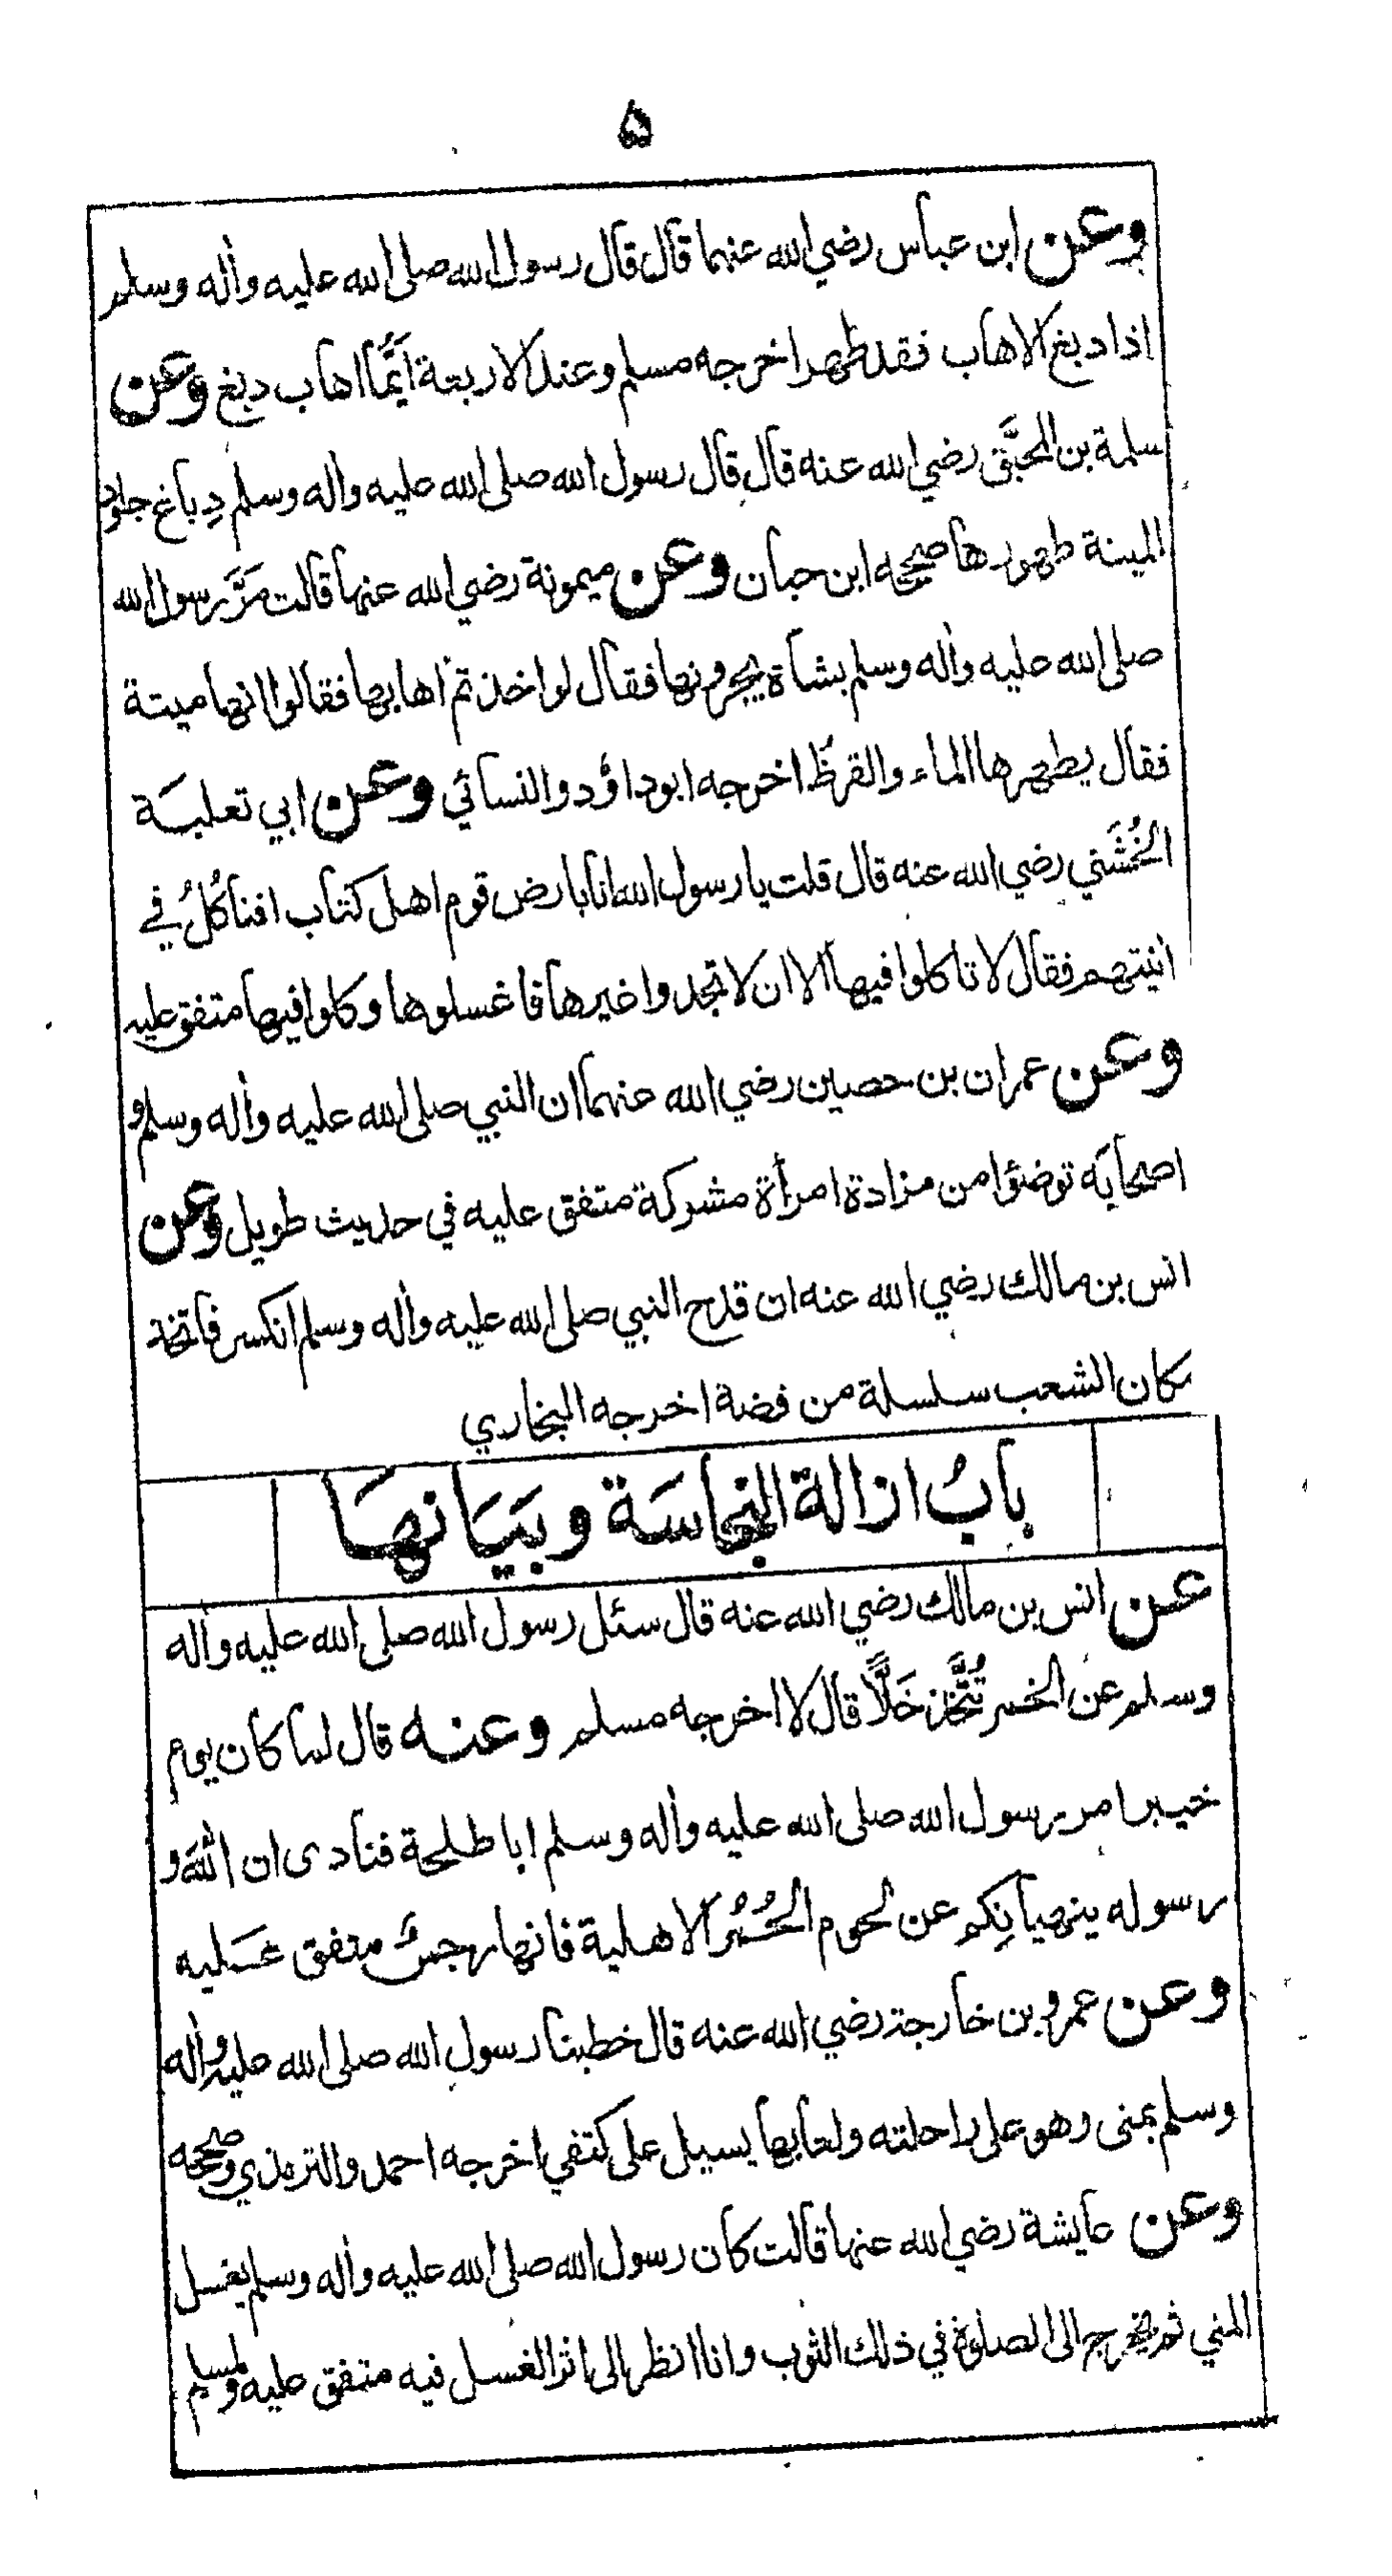 ۵
وعن ابن عباس رضي الله عنهما قال قال رسول الله صلى الله عليه واٰله وسلم
اذا دبغ الاهاب فقد طهر اخرجه مسلم وعند الاربعة اَيُّمَا اهاب دبغ وعن
سلمة بن المحبَّق رضي الله عنه قال قال رسول الله صلى الله عليه واٰله وسلم دِباغ جلود
الميتة طهورها صححه ابن حبان وعن ميمونة رضي الله عنها قالت مَرَّ رسول الله
صلى الله عليه واٰله وسلم بشاة يجرونها فقال لو اخذتم اهابها فقالوا انها ميتة
فقال يطهرها الماء والقرظ اخرجه ابو داؤد والنسائي وعن ابي ثعلبَة
الخُشَني رضي الله عنه قال قلت يا رسول الله انا بارض قوم اهل كتاب افنأكُلُ في
اٰنيتهم فقال لا تاكلوا فيها الا ان لا تجدوا غيرها فاغسلوها وكلوا فيها متفق عليه
وعن عمران بن حصين رضي الله عنهما ان النبي صلى الله عليه واٰله وسلم و
اصحابَه توضؤا من مزادة امرأة مشركة متفق عليه في حديث طويل وعن
انس بن مالك رضي الله عنه ان قدح النبي صلى الله عليه واٰله وسلم انكسر فاتخذ
مكان الشعب سلسلة من فضة اخرجه البخاري
بابُ ازالة النجاسَة وبَيَانهَا
عن انس بن مالك رضي الله عنه قال سئل رسول الله صلى الله عليه واٰله
وسلم عن الخمر تُتَّخَذ خَلًّا قال لا اخرجه مسلم وعنه قال لما كان يوم
خيبر امر رسول الله صلى الله عليه واٰله وسلم ابا طلحة فنادى ان اللهَ و
رسوله ينهيانِكم عن لحوم الحُمُر الاهلية فانها رجسٌ متفق عَليه
وعن عمرو بن خارجة رضي الله عنه قال خطبنا رسول الله صلى الله عليه واٰله
وسلم بمنى وهو على راحلته ولعابها يسيل على كتفي اخرجه احمد والترمذي وصححه
وعن عايشة رضي الله عنها قالت كان رسول الله صلى الله عليه واٰله وسلم يغسل
المني ثم يخرج الى الصلوة في ذلك الثوب وانا انظر الى اثر الغسل فيه متفق عليه ولمسلم